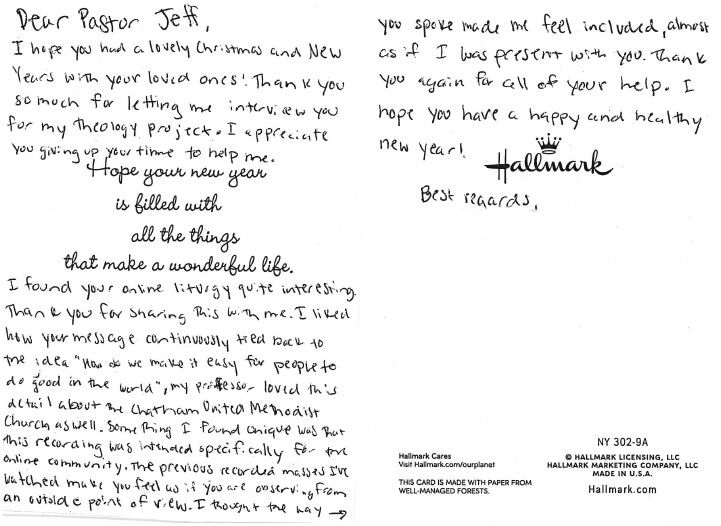 Dear Pastor Jeff,
I hope you had a lovely Christmas and New
Years with your loved ones! Thank you
so much for letting me interview you
for my theology project. I appreciate
you giving up your time to help me.
Hope your new year
is filled with
all the things
that make a wonderful life.
I found your online liturgy quite interesting.
Thank you for sharing this with me. I liked
how your message continuously tied back to
the idea "How do we make it easy for people to
do good in the world", my professor loved this
detail about the Chatham United Methodist
Church as well. Something I found unique was that
this recording was intended specifically for the
online community. The previous recorded masses I've
watched make you feel as if you are observing from
an outside point of view. I thought the way →
you spoke made me feel included, almost
as if I was present with you. Thank
you again for all of your help. I
hope you have a happy and healthy
new year!
Hallmark
Best regards,
Hallmark Cares
Visit Hallmark.com/ourplanet
THIS CARD IS MADE WITH PAPER FROM
WELL-MANAGED FORESTS.
NY 302-9A
© HALLMARK LICENSING, LLC
HALLMARK MARKETING COMPANY, LLC
MADE IN U.S.A.
Hallmark.com